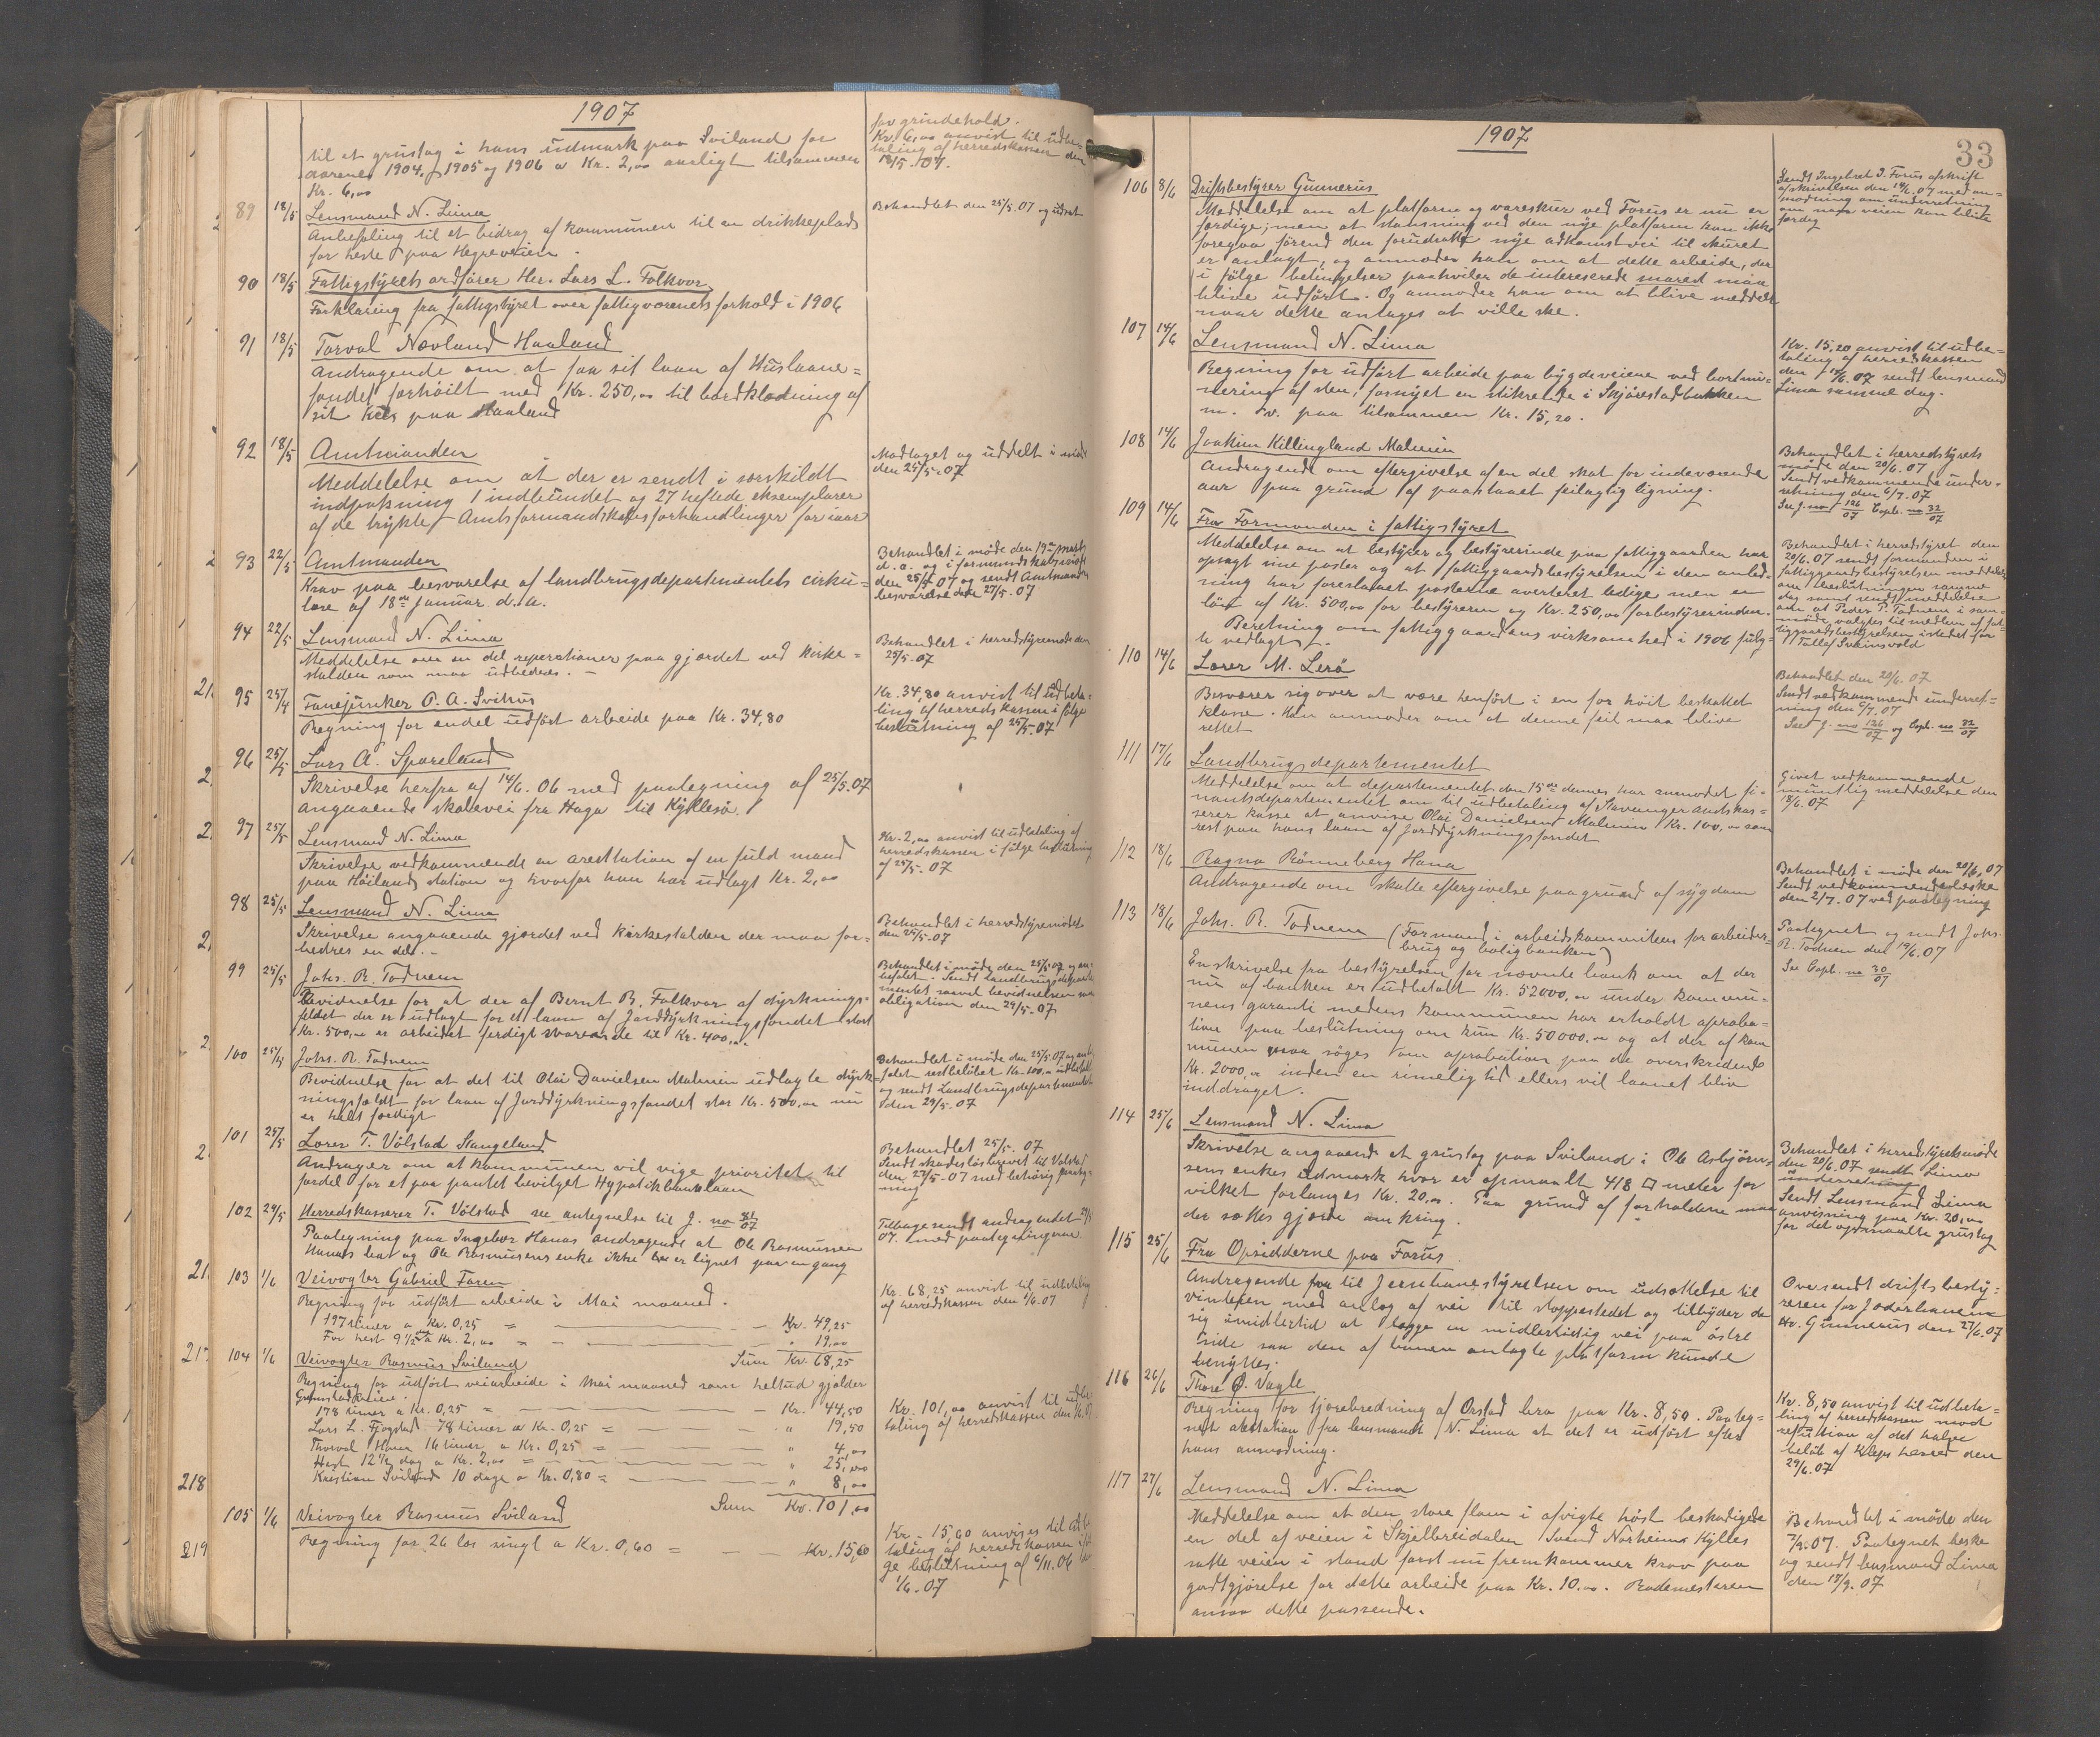 1907
til et grustag i hans udmark paa Sviland for
aarene 1904, 1905 og 1906 a Kr. 2,00 aarligt tilsammen
Kr. 6,00
for grindehold.
Kr. 6,00 anvist til udbe-
taling af herredskassen den
18/5.07.
89 18/5 Lensmand N. Lima
Anbefaling til et bidrag af kommunen til en drikkeplads
for heste paa Hogreveien.
Behandlet den 25/5.07 og udsat
90 18/5 Fattigstyrets ordfører Her. Lars L. Folkvor
Forklaring fra fattigstyret over fattigvæsenets forhold i 1906
91 18/5 Torval Nævland Haaland
Andragende om at faa sit laan af Huslaane=
fondet forhøilt med Kr. 250,00 til bordklædning af
sit hus paa Haaland
92 18/5 Amtmanden
Meddelelse om at der er sendt i særskildt
indpakning 1 indbundet og 27 heftede eksemplarer
af de trykte Amtsformandskabsforhandlinger for iaar
Modtaget og uddelt i møde
den 25/5.07
93 22/5 Amtmanden
Krav paa besvarelse af landbrugsdepartementets cirku=
lære af 18de Januar d.a.
Behandlet i møde den 19de marts
d.a. og i formandskabsmøde
den 25/5 07 og sendt Amtmanden
besvarelse den 27/5.07
94 22/5 Lensmand N. Lima
Meddelelse om en del reperationer paa gjærdet ved kirke=
stalden som maa udbedres. -
Behandlet i herredstyremøde den
25/5.07
95 25/4 Fanejunker P. A. Svihus
Regning for endel udført arbeide paa Kr. 34,80
Kr. 34,80 anvist til udbeta-
ling af herredskassen i følge
beslutning af 25/5.07
96 25/5 Lars A. Spareland
Skrivelse herfra af 14/6.06 med paategning af 25/5.07
angaaende skolevei fra Haga til Kyllesø.
97 25/5 Lensmand N. Lima
Skrivelse vedkommende en arestation af en fuld mand
paa Høilands station og hvorfor han har udlagt Kr. 2,00
Kr. 2,00 anvist til udbetaling af
herredskassen i følge beslutning
af 25/5.07
98 25/5 Lensmand N. Lima
Skrivelse angaaende gjærdet ved kirkestalden der maa for-
bedres en del. -
Behandlet i herredstyremøde
den 25/5.07
99 25/5 Johs. R. Todnem
Bevidnelse for at der af Bernt B. Folkvor af dyrknings-
feldet der er udlagt for et laan af Jorddyrkningsfondet stort
Kr. 500,00 er arbeidet ferdigt svarende til Kr. 400,00
Behandlet i møde den 25/5.07 og an-
befalet. Sendt Landbrugsdeparte-
mentet saavel bevidnelsen som
obligation den 29/5.07
100 25/5 Johs. R. Todnem
Bevidnelse for at det til Olai Danielsen Malmin udlagte dyrk-
ningsfeldt for laan af Jorddyrkningsfondet stor Kr. 500,00 nu
er helt færdigt
Behandlet i møde den 25/5.07 og anbe-
falet restbeløbet Kr. 100,00 udbetalt
og sendt Landbrugsdepartementet
den 29/5.07
101 25/5 Lærer T. Vølstad Stangeland
Andrager om at kommunen vil vige prioritet til
fordel for et paa pantet bevilget Hypotekbanklaan
Behandlet 25/5.07
Sendt skadesløsbrevet til Vølstad
den 27/5.07 med behørig paateg-
ning
102 29/5 Herredskasserer T. Vølstad se antegnelse til J. no 81/07
Paategning paa Ingebor Hanas andragende at Ole Rasmussen
Hanas bra og Ole Rasmussens enke ikke er lignet paa en gang
Tilbagesendt andragendet 29/5
07. med paategningerne
103 1/6 Veivogter Gabriel Foren
Regning for udført arbeide i Mai maaned.
197 timer a Kr. 0,25 = — — Kr. 49,25
For hest 9½ dag a Kr. 2,00 = — — " 19,00
Sum Kr. 68,25
Kr. 68,25 anvist til udbetaling
af herredskassen den 1/6.07
104 1/6 Veivogter Rasmus Sviland
Regning for udført veiarbeide i Mai maaned som heltud gjælder
Gramstadveien.
178 timer a Kr. 0,25 = — — Kr. 44,50
Lars L. Fjogstad 78 timer a Kr. 0,25 = — — " 19,50
Thorval Hana 16 timer a Kr. 0,25 = — — " 4,00
Hest 12½ dag a Kr. 2,00 = — — " 25,00
Kristian Sviland 10 dage a Kr. 0,80 = — — " 8,00
Sum Kr. 101,00
Kr. 101,00 anvist til udbe-
taling af herredskassen den 1/6.07
105 1/6 Veivogter Rasmus Sviland
Regning for 26 las singl a Kr. 0,60 = — — Kr. 15,60
Kr. 15,60 anvises til udbe-
taling af herredskassen i føl-
ge beslutning af 6/11.06 den
1/6.07
21
2
2
2
2
2
21
217
218
219
1907
33
106 8/6 Driftsbestyrer Gunnerus
Meddelelse om at platform og vareskur ved Forus er nu er
færdige; men at stansning ved den nye platform kan ikke
foregaa førend den forudsatte nye adkomstvei til skuret
er anlagt, og anmoder han om at dette arbeide, der
i følge betingelser paahviler de interesserede snarest maa
blive udført. Og anmoder han om at blive meddelt
naar dette antages at ville ske.
Sendt Ingebret I. Forus afskrift
af skrivelsen den 14/6.07 med an-
modning om underretning
om naar veien kan blive
færdig
107 14/6 Lensmand N. Lima
Regning for udført arbeide paa bygdeveiene ved bortmi-
nering af sten, fornyet en stikrende i Skjørestadbakken
m. v. paa tilsammen Kr. 15,20.
Kr. 15,20 anvist til udbe-
taling af herredskassen
den 14/6.07 sendt lensmand
Lima samme dag.
108 14/6 Joakim Killingland Malmin
Andragende om eftergivelse af en del skat for indeværende
aar paa grund af paastaaet feilagtig ligning.
Behandlet i herredstyrets
møde den 20/6.07
Sendt vedkommende under-
retning den 6/7.07
Se j. no 126/07 Copb. no 32/07
109 14/6 Fra Formanden i fattigstyret
Meddelelse om at bestyrer og bestyrerinde paa fattiggaarden har
opsagt sine poster og at fattiggaardsbestyrelsen i den anled-
ning har foreslaaet posterne averteret ledige men en
løn af Kr. 500,00 for bestyreren og Kr. 250,00 for bestyrerinden.
Beretning om fattiggaardens virksomhed i 1906 fulg-
te vedlagt.
Behandlet i herredstyret den
20/6.07 sendt formanden i
fattiggaardsbestyrelsen meddelelse
om beslutningen samme
dag samt sendt meddelelse
om at Peder P. Todnem i sam-
møde valgtes til medlem af fat-
tiggaardsbestyrelsen istedet for
Tollef Svainsvold
110 14/6 Lærer M. Lerø
Besværer sig over at være henført i en for høit beskattet
klasse. Han anmoder om at denne feil maa blive
rettet
Behandlet den 20/6.07
Sendt vedkommende underret-
ning den 6/7.07
See J. no 126/07 og Copb. no 32/07
111 17/6 Landbrugsdepartementet
Meddelelse om at departementet den 15de dennes har anmodet fi-
nantsdepartementet om til udbetaling af Stavanger amtskas-
serer kasse at anvise Olai Danielsen Malmin Kr. 100,00 som
rest paa hans laan af Jorddyrkningsfondet
Givet vedkommende
mundtlig meddelelse den
18/6.07
112 18/6 Ragna Rønneberg Hana
Andragende om skatte eftergivelse paagrund af sygdom
Behandlet i møde den 20/6.07
Sendt vedkommende
den 2/7.07 ved paategning
113 18/6 Johs. R. Todnem (Formand i arbeidskommiteen for arbeider-
brug og boligbanken)
En skrivelse fra bestyrelsen for nævnte bank om at der
nu af banken er udbetalt Kr. 52000,00 under kommu-
nens garanti medens kommunen har erholdt aproba-
tion paa beslutning om kun Kr. 50000,00 og at der af kom
munen maa søges om aprobation paa de overskridende
Kr. 2000,00 inden en rimelig tid ellers vil laanet bliv
inddraget.
Paategnet og sendt Johs.
R. Todnem den 19/6.07
See Copb. no 30/07
114 25/6 Lensmand N. Lima
Skrivelse angaaende et grustag paa Sviland i Ole Asbjørn-
sens enkes udmark hvor er opmaalt 418 □ meter for
vilket forlanges Kr. 20,00. Paa grund af forholdene maa
der sættes gjærde omkring.
Behandlet i herredstyremøde
den 20/6.07 sendt Lima
underretning
Sendt Lensmand Lima
anvisning paa Kr. 20,00
for det opmaalte grustag
115 25/6 Fra Opsidderne paa Forus
Andragende fra til Jernbanestyrelsen om udsættelse til
vinteren med anlæg af vei til stoppestedet og tilbyder de
sig imidlertid at lægge en midlertidig vei paa østre
side saa den af banen anlagte platform kunde
benyttes.
Oversendt driftsbesty-
reren for Jæderbanen
Hr. Gunnerus den 27/6.07
116 26/6 Thore Ø. Vagle
Regning for tjørebredning af Orstad bro paa Kr. 8,50. Paateg-
net atestation fra lensmand N. Lima at det er udført efter
hans anmodning.
Kr. 8,50 anvist til udbeta-
ling af herredskassen mod
refution af det halve
beløb af Klep herred den
29/6.07
117 27/6 Lensmand N. Lima
Meddelelse om at den store flom i afvigte høst beskadigede
en del af veien i Skjelbreidalen Svend Norheims Kylles
satte veien i stand først nu fremkommer krav paa
godtgjørelse for dette arbeide paa Kr. 10,00. Rodemesteren
ansaa dette passende.
Behandlet i møde den
7/9.07. Paategnet
og sendt lensmand Lima
den 17/9.07